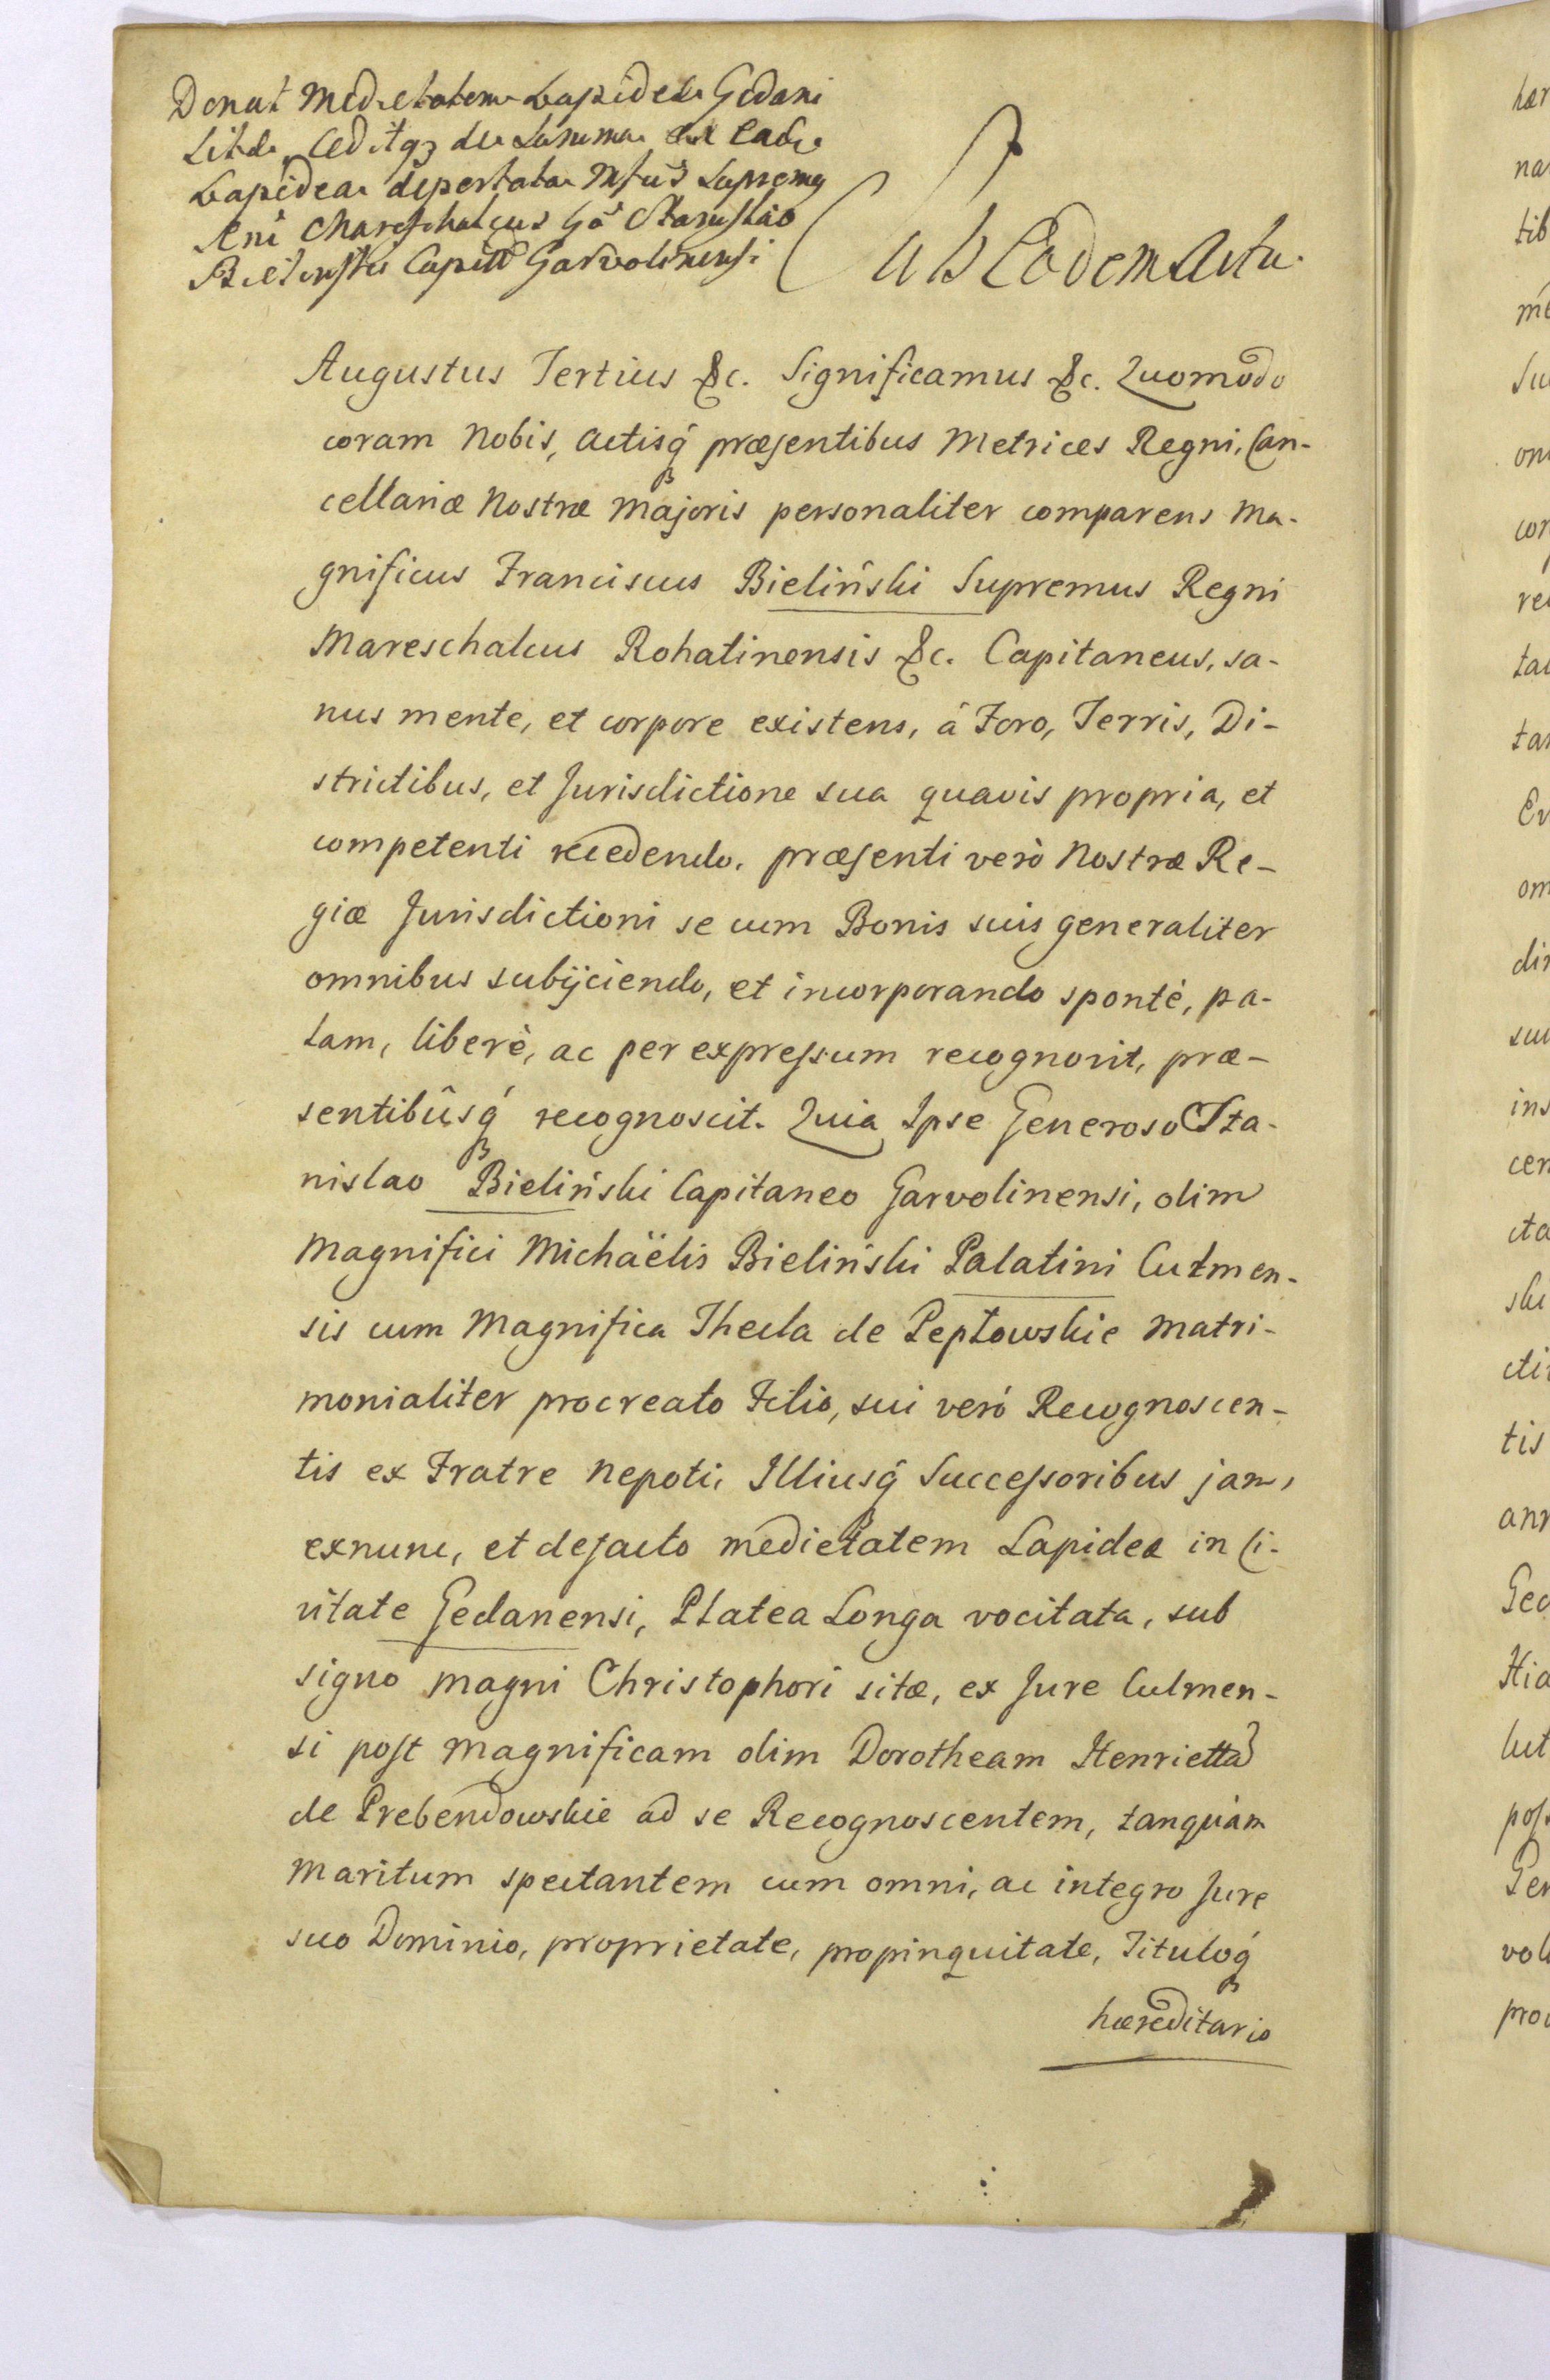 Donat Medietatem Lapideæ Gedani
Sitæ, Ceditqz de Summa ex eadem
Lapidea deportata Mfus Supremus
Rni Mareschalcus Go Stanislao
Bielinski Capitō Garvolinensi
Sub Eodem Actu.
Augustus Tertius &c. Significamus &c. Quomodo
coram Nobis, actisq́ præsentibus Metrices Regni, Can-
cellariæ Nostræ Majoris personaliter comparens Ma-
gnificus Franciscus Bieliński Supremus Regni
Mareschalcus Rohatinensis &c. Capitaneus, sa-
nus mente, et corpore existens, á Foro, Terris, Di-
strictibus, et Jurisdictione sua quavis propria, et
competenti recedendo, præsenti verò Nostræ Re-
giæ Jurisdictioni se cum Bonis suis generaliter
omnibus subijciendo, et incorporando spontè, pa-
lam, liberè, ac per expressum recognovit, præ-
sentibûsq́ recognoscit. Quia Ipse Generoso Sta-
nislao Bieliński Capitaneo Garvolinensi, olim
Magnifici Michaëlis Bieliński Palatini Culmen-
sis cum Magnifica Thecla de Pepłowskie matri-
monialiter procreato Filio, sui veró Recognoscen-
tis ex Fratre Nepoti, Illiusq́ Successoribus jam,
exnunc, et defacto medietatem Lapideæ in Ci-
vitate Gedanensi, Platea Longa vocitata, sub
signo Magni Christophori sitæ, ex Jure Culmen-
si post Magnificam olim Dorotheam Henrietta
de Prebendowskie ad se Recognoscentem, tanquàm
Maritum spectantem cum omni, ac integro Jure
suo Dominio, proprietate, propinquitate, Tituloq́
hæreditario